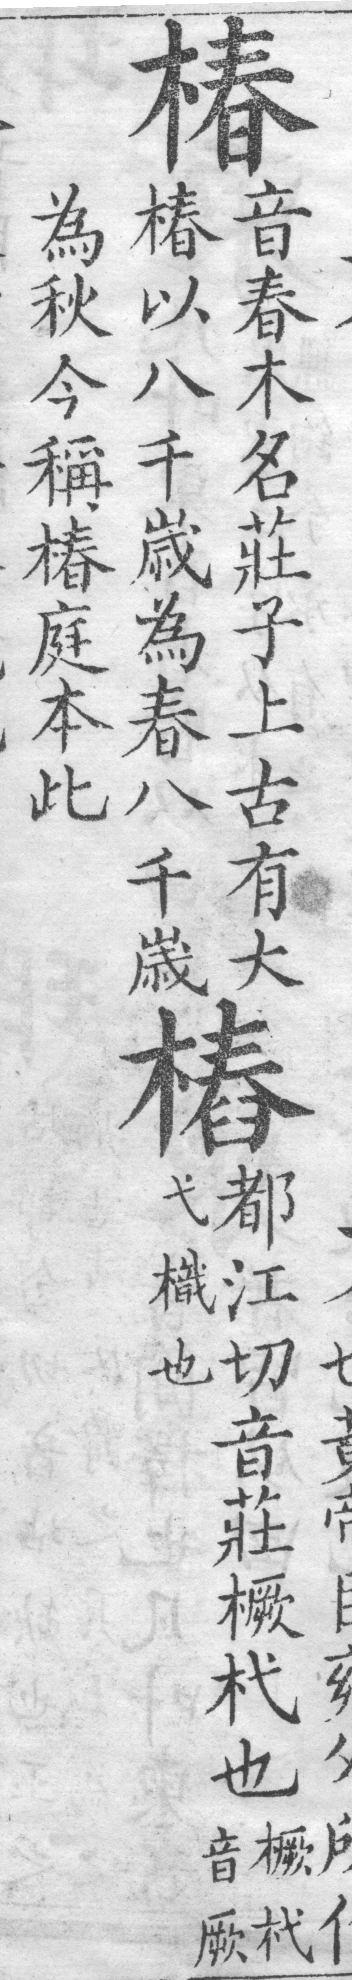 椿
音春木名莊子上古有大
椿以八千歲為春八千歲
為秋今稱椿庭本此
樁
都江切音莊橛杙也橛杙
音厥
弋樴也
也黃帝臣雍父所作